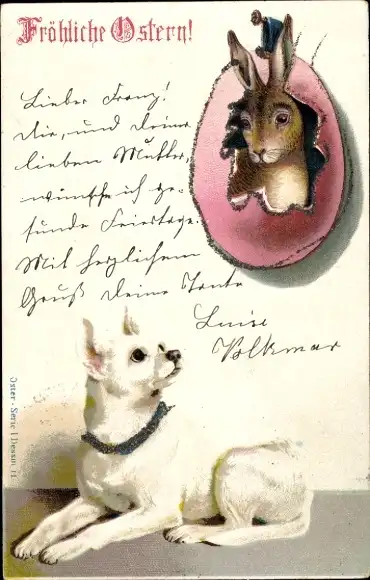 Fröhliche Ostern!
Lieber Franz!
Dir, und Deiner
lieben Mutter,
wünsche ich ge-
sunde Feiertage.
Mit herzlichem
Gruß Deine Tante
Luise
Volkmar
Oster-Serie I Dessin 11